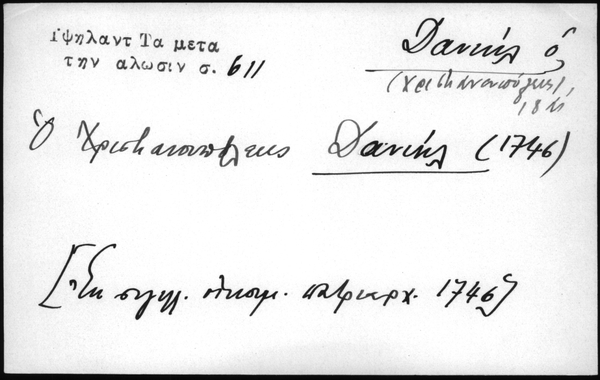 Ὑψηλαντ Τα μετα
την αλωσιν σ. 611
Δανιήλ ὁ
(Χριστιανουπόλεως),
18
Ὁ Χριστιανουπόλεως Δανιήλ (1746)
[Ἐκ σιγιλλ. πατριαρχ. 1746]